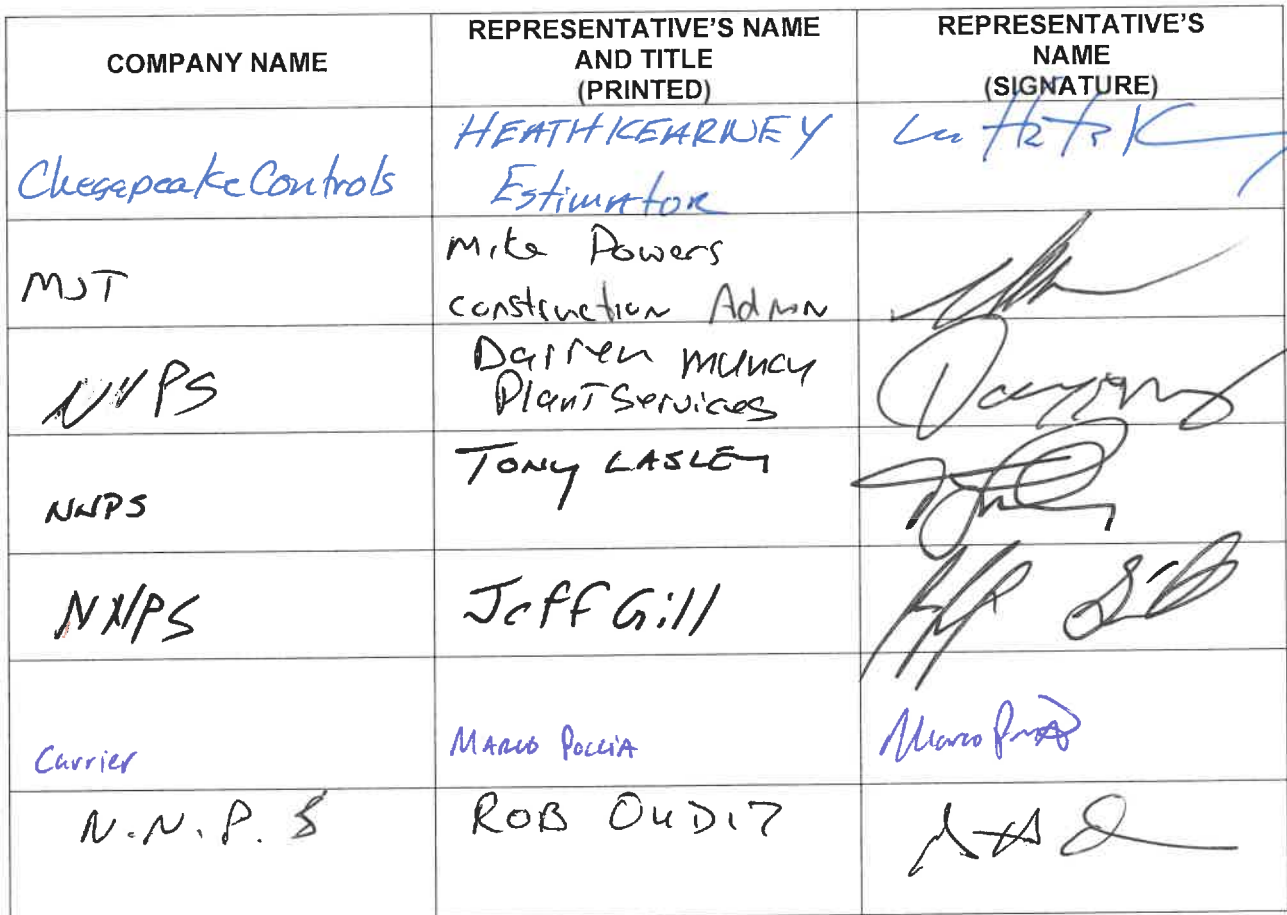 COMPANY NAME
REPRESENTATIVE'S NAME
AND TITLE
(PRINTED)
REPRESENTATIVE'S
NAME
(SIGNATURE)
Chesapeake Controls
HEATH KEARNEY
Estimator
MJT
Mike Powers
construction Admin
NNPS
Darren Muncy
Plant Services
NNPS
TONY LASLEY
NNPS
Jeff Gill
Carrier
MARCO POCCIA
Marco
N.N.P.S
ROB OUDIT